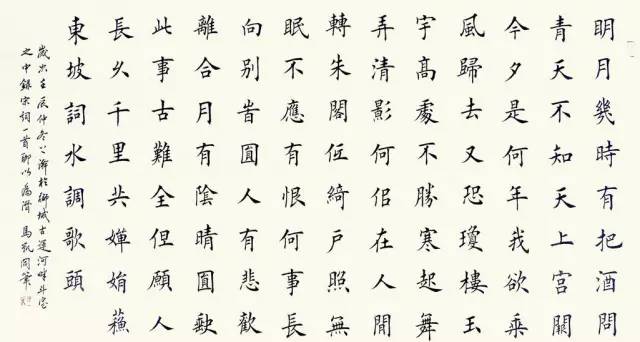 眀月幾時有把酒問
青天不知天上宮闕
今夕是何年我欲乘
風歸去又恐瓊樓玉
宇高處不勝寒起舞
弄清影何佀在人間
轉朱閣低綺戶照無
眠不應有恨何事長
向別旹圓人有悲歡
離合月有陰晴圓缺
此事古難全但願人
長久千里共嬋娟 蘇
東坡詞水調歌頭
歲次壬辰仲冬於聊城古運河畔斗室
之中錄宋詞一首聊以為 馬凱同筆